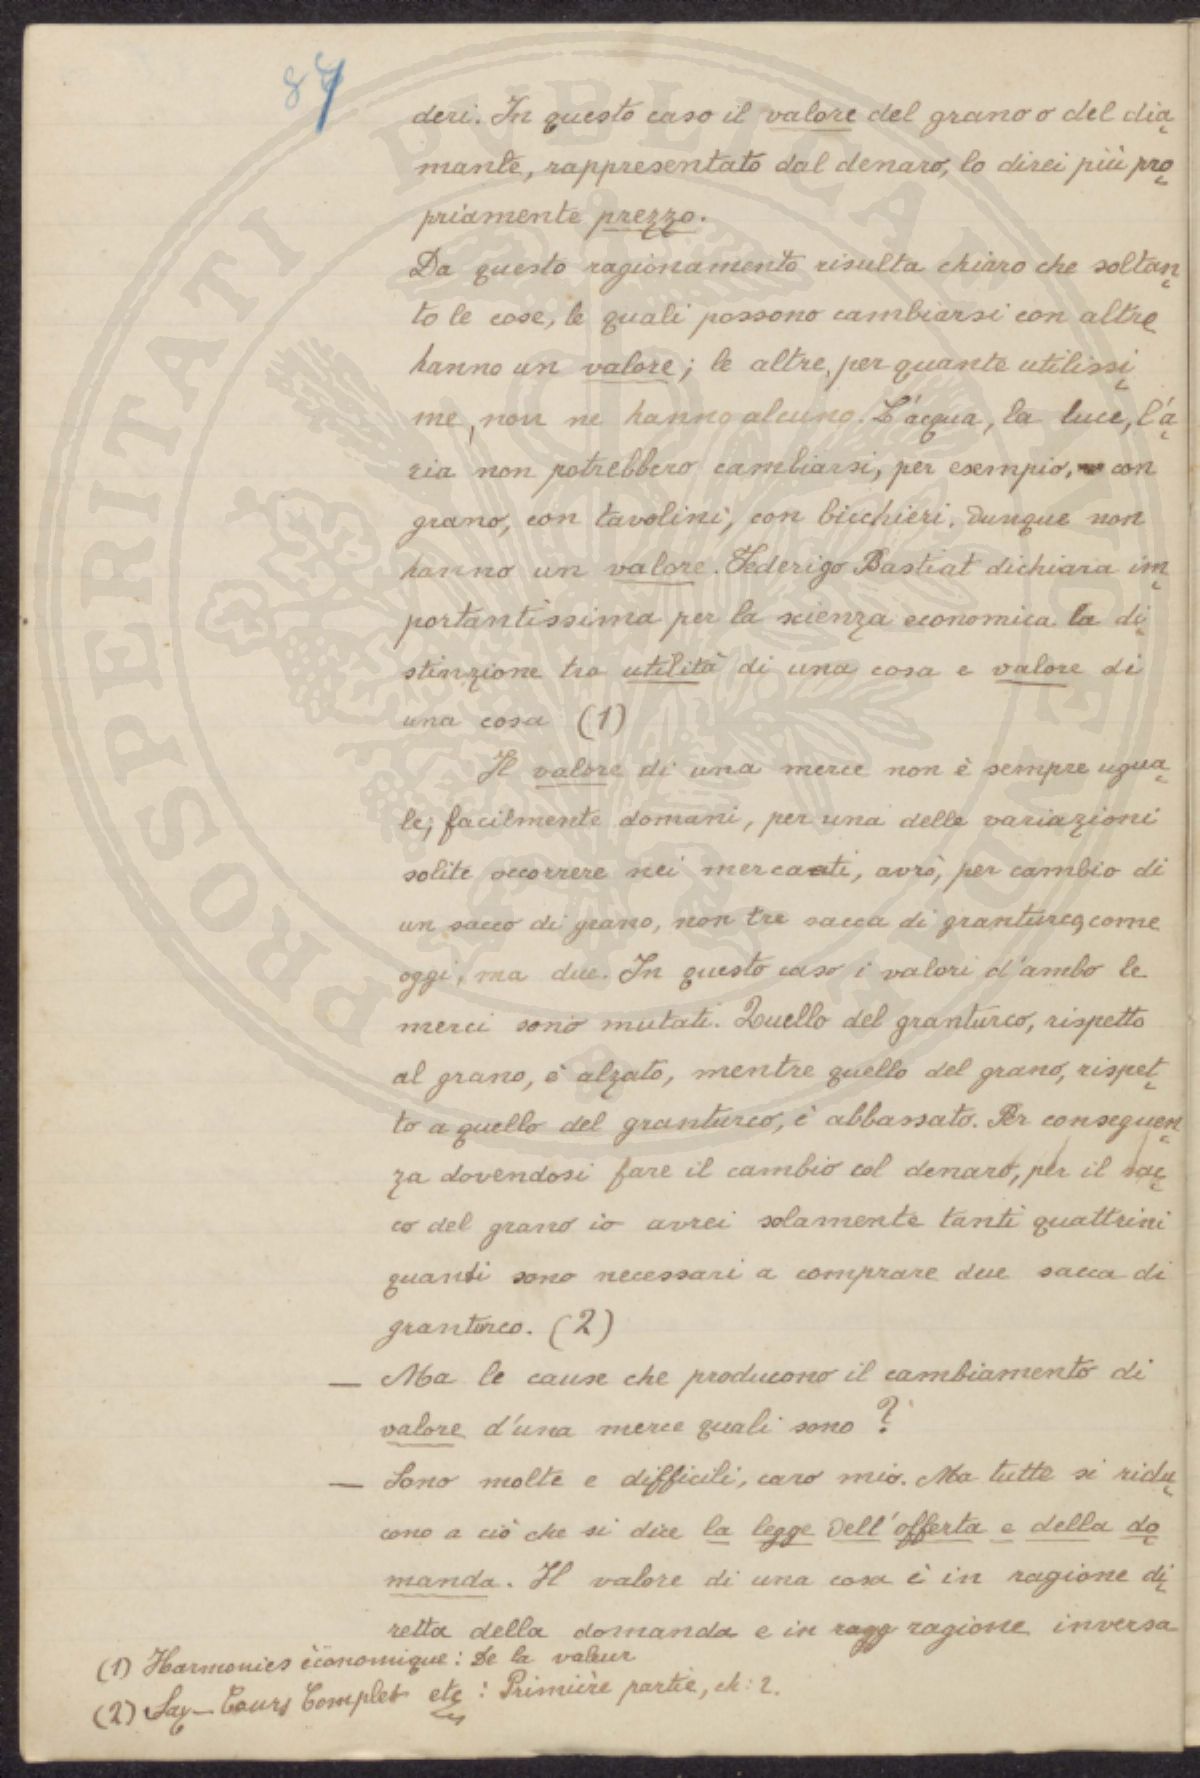 87
deri. In questo caso il valore del grano o del dia
mante, rappresentato dal denaro, lo direi più pro
priamente prezzo.
Da questo ragionamento risulta chiaro che soltan
to le cose, le quali possono cambiarsi con altre
hanno un valore; le altre, per quante utilissi
me, non ne hanno alcuno. L'acqua, la luce, l'a
ria non potrebbero cambiarsi, per esempio, con
grano, con tavolini, con bicchieri. Dunque non
hanno un valore. Federigo Bastiat dichiara im
portantissima per la scienza economica la di
stinzione tra utilità di una cosa e valore di
una cosa (1)
Il valore di una merce non è sempre ugua
le; facilmente domani, per una delle variazioni
solite occorrere nei mercati, avrò, per cambio di
un sacco di grano, non tre sacca di granturco, come
oggi, ma due. In questo caso i valori d'ambo le
merci sono mutati. Quello del granturco, rispetto
al grano, è alzato, mentre quello del grano, rispet
to a quello del granturco, è abbassato. Per conseguen
za dovendosi fare il cambio col denaro, per il sac
co del grano io avrei solamente tanti quattrini
quanti sono necessari a comprare due sacca di
granturco. (2)
— Ma le cause che producono il cambiamento di
valore d'una merce quali sono?
— Sono molte e difficili, caro mio. Ma tutte si ridu
cono a ciò che si dice la legge dell'offerta e della do
manda. Il valore di una cosa è in ragione di
retta della domanda e in ragg ragione inversa
(1) Harmonies èconomique: De la valeur
(2) Say — Cours Complet etc: Primière partie, ch: 2.
PROSPERITATI PUBLICAE AUGENDAE